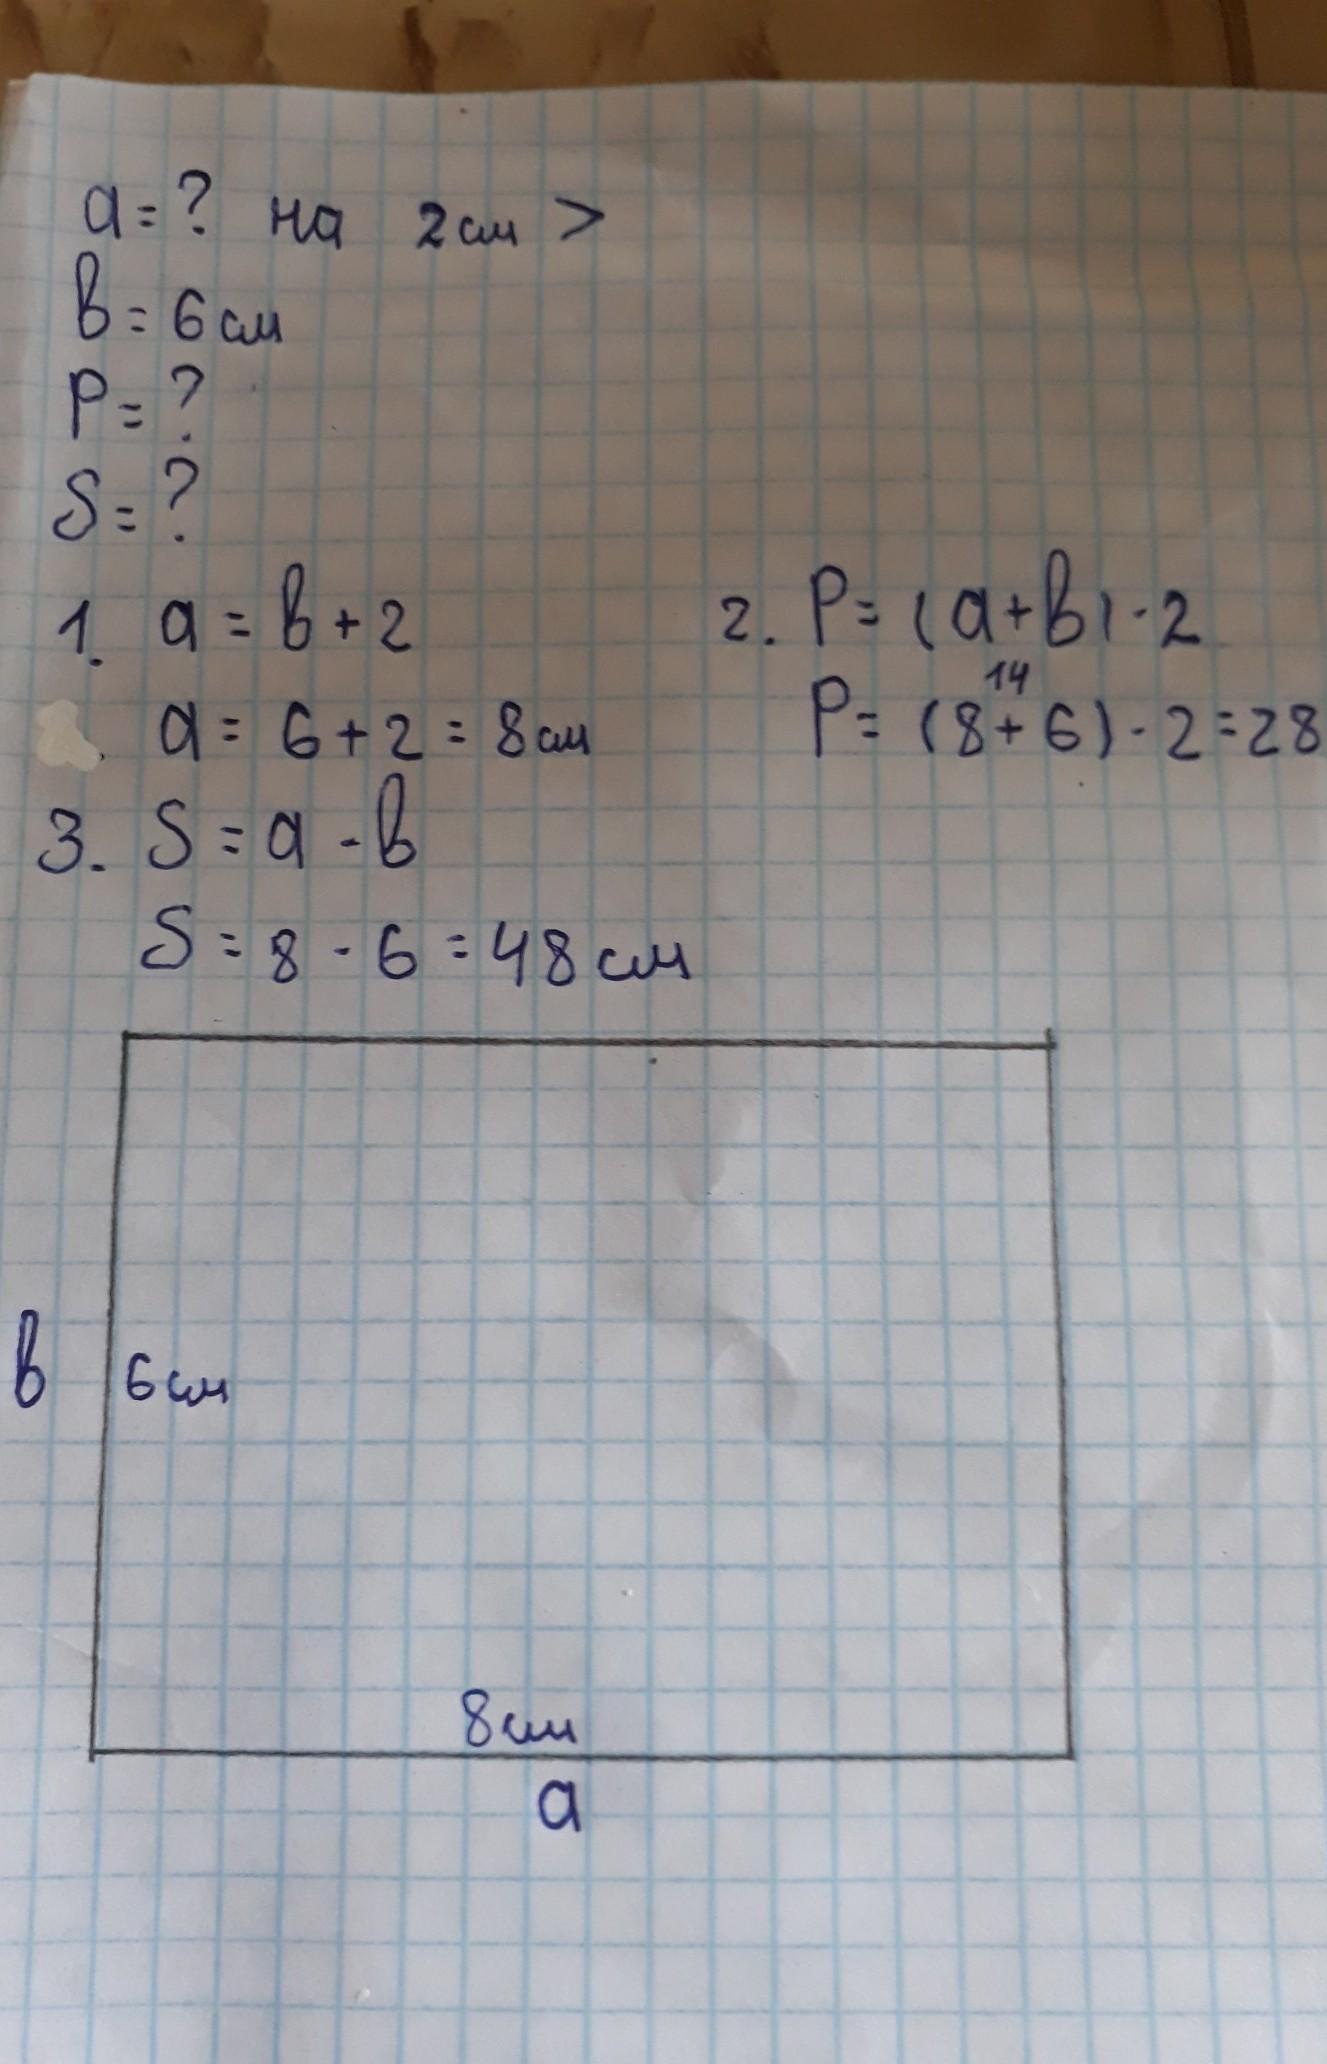 a = ? на 2 см >
в = 6 см
P = ?
S = ?
1. a = в + 2
a = 6 + 2 = 8 см
2. P = (a + в) · 2
14
P = (8 + 6) · 2 = 28
3. S = a · в
S = 8 · 6 = 48 см
в 6 см
8 см
a